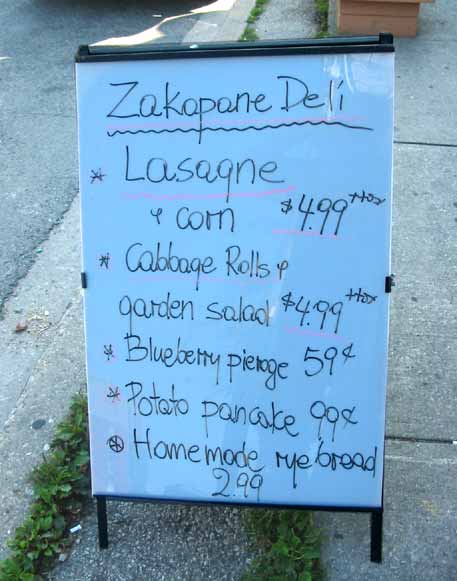 Zakopane Deli
* Lasagne
& corn $4.99 +tax
* Cabbage Rolls &
garden salad $4.99 +tax
* Blueberry pieroge 59¢
* Potato pancake 99¢
* Homemade rye bread
2.99